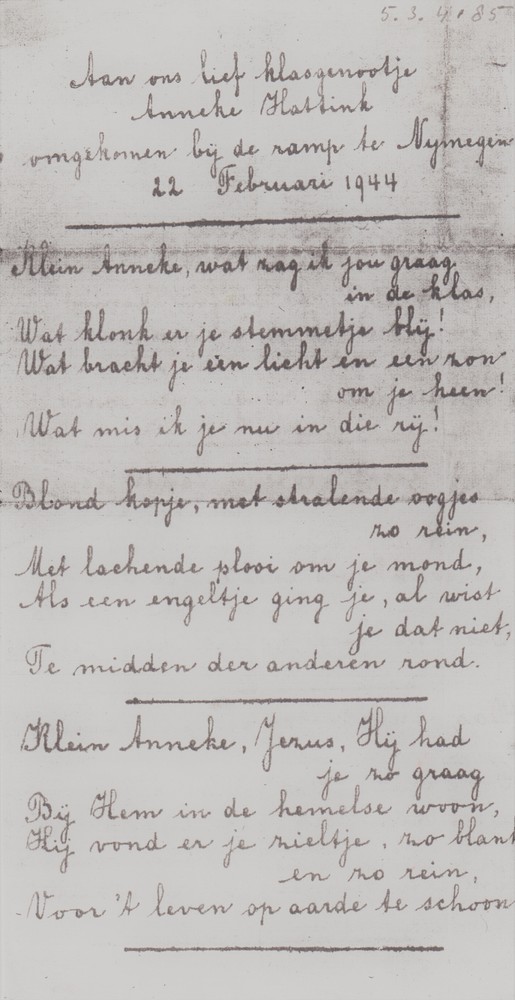 5.3.4.85
Aan ons lief klasgenootje
Anneke Hattink
omgekomen bij de ramp te Nymegen
22 Februari 1944
Klein Anneke, wat zag ik jou graag
in de klas,
Wat klonk er je stemmetje blij!
Wat bracht je een licht en een zon
om je heen!
Wat mis ik je nu in die rij!
Blond kopje, met stralende oogjes
zo rein,
Met lachende plooi om je mond,
Als een engeltje ging je, al wist
je dat niet,
Te midden der anderen rond.
Klein Anneke, Jezus, Hij had
je zo graag
Bij Hem in de hemelse woon,
Hij vond er je zieltje, zo blank
en zo rein,
Voor 't leven op aarde te schoon